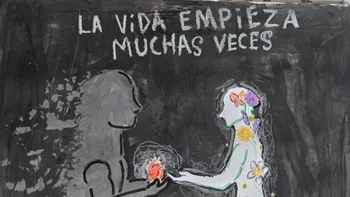 LA ViDA EMPiEZA
MUCHAS VECES